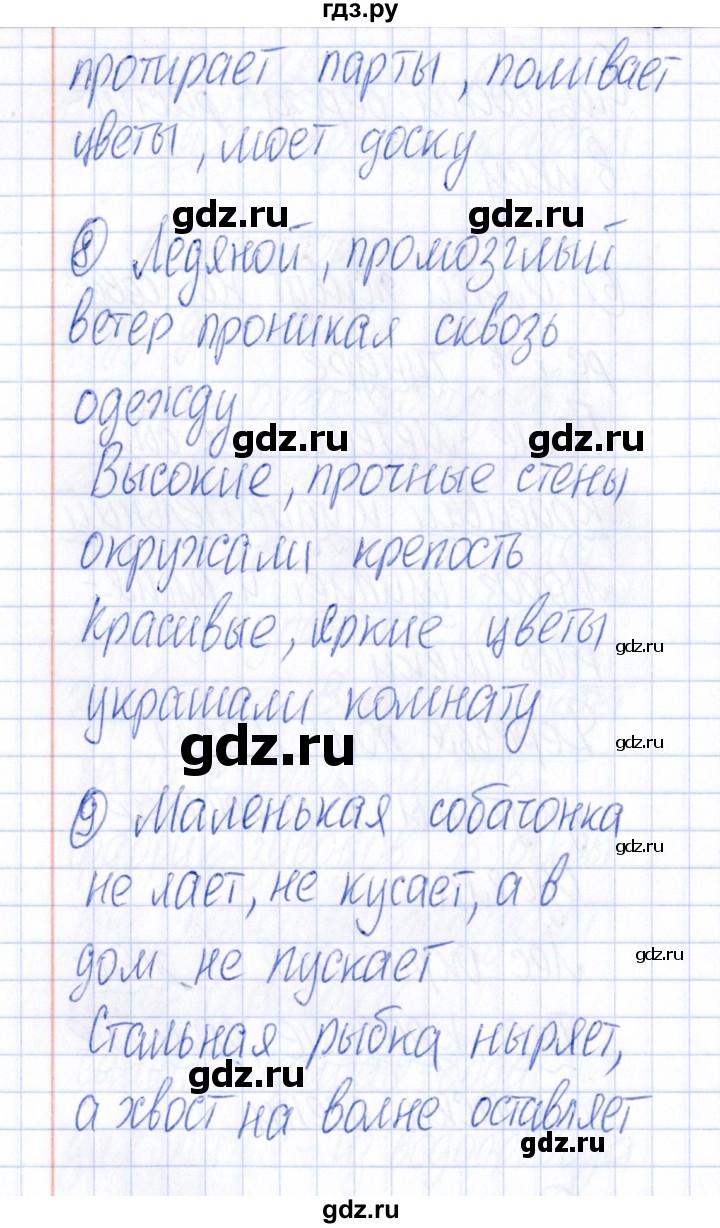 гдз.ру
протирает парты, поливает
цветы, моет доску
gdz.ru gdz.ru
8 Ледяной, промозглый
ветер проникал сквозь
одежду
gdz.ru gdz.ru
Высокие, прочные стены
окружали крепость
Красивые, яркие цветы
gdz.ru
украшали комнату
gdz.ru gdz.ru
9 Маленькая собачонка
gdz.ru
не лает, не кусает, а в
дом не пускает
gdz.ru
Стальная рыбка ныряет,
gdz.ru
а хвост на волне оставляет
gdz.ru
gdz.ru